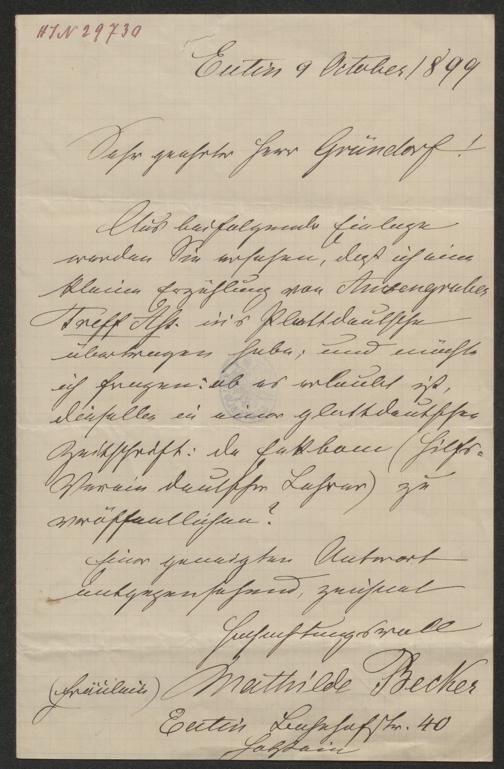 HJN 29730
Eutin 9 October 1899
Sehr geehrter Herr Gründorf!
Aus beifolgende Einlage
werden Sie ersehen, daß ich eine
kleine Erzählung von Anzengruber
Treff Aß. in's Plattdeutsche
übertragen habe; und möchte
ich fragen: ob es erlaubt ist,
dieselbe in einer plattdeutschen
Zeitschrift: de Eekbom (Hilfs-
Verein deutscher Lehrer) zu
veröffentlichen?
Einer geneigten Antwort
entgegensehend, zeichnet
hochachtungsvoll
(Fräulein) Mathilde Becker
Eutin Bahnhofstr. 40
Holstein